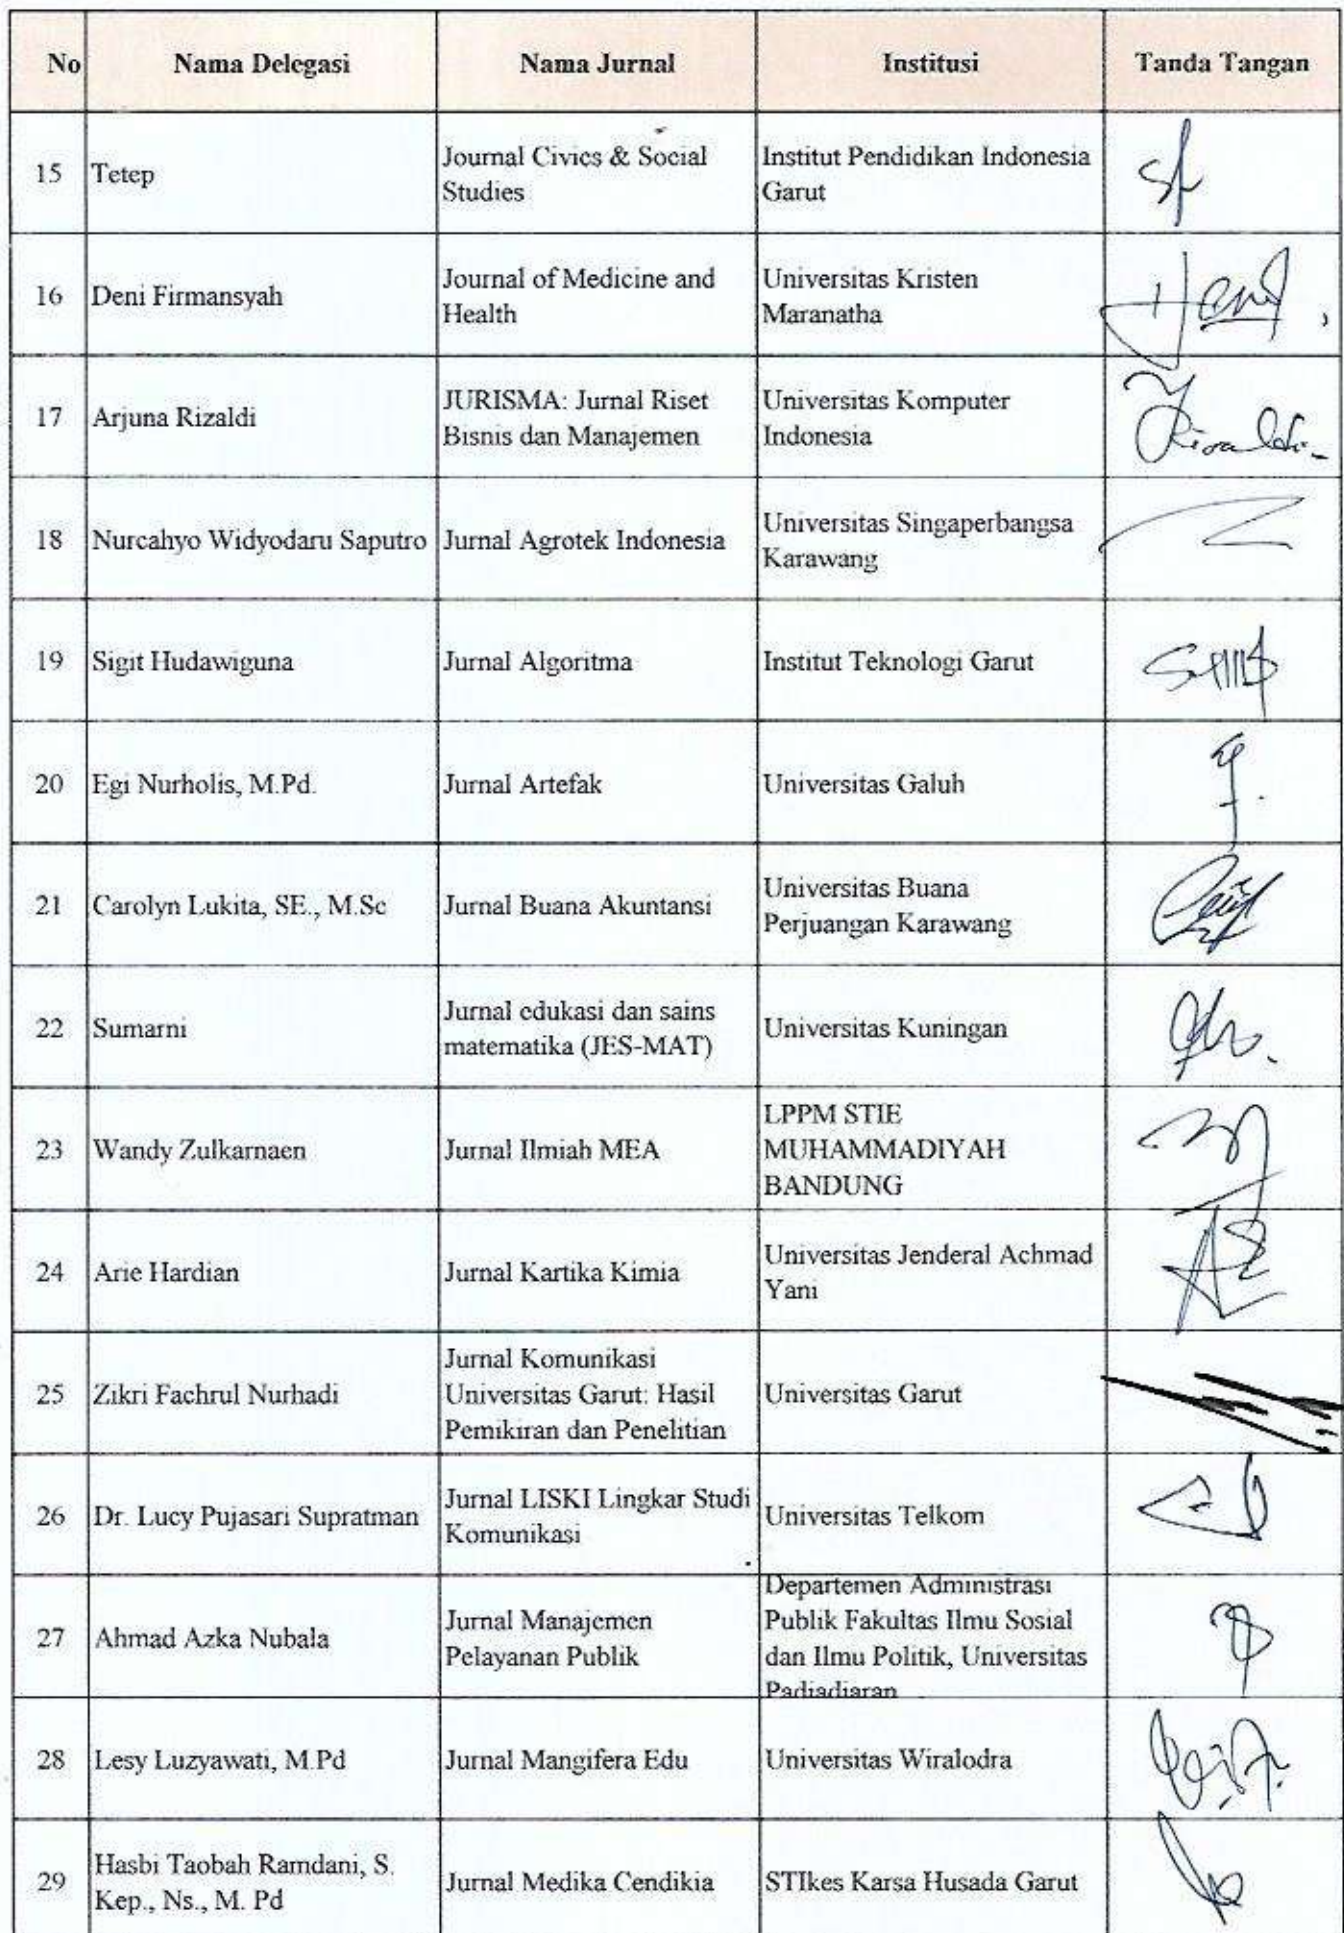 No Nama Delegasi Nama Jurnal Institusi Tanda Tangan
15 Tetep Journal Civics & Social Studies Institut Pendidikan Indonesia Garut
16 Deni Firmansyah Journal of Medicine and Health Universitas Kristen Maranatha
17 Arjuna Rizaldi JURISMA: Jurnal Riset Bisnis dan Manajemen Universitas Komputer Indonesia
18 Nurcahyo Widyodaru Saputro Jurnal Agrotek Indonesia Universitas Singaperbangsa Karawang
19 Sigit Hudawiguna Jurnal Algoritma Institut Teknologi Garut
20 Egi Nurholis, M.Pd. Jurnal Artefak Universitas Galuh
21 Carolyn Lukita, SE., M.Sc Jurnal Buana Akuntansi Universitas Buana Perjuangan Karawang
22 Sumarni Jurnal edukasi dan sains matematika (JES-MAT) Universitas Kuningan
23 Wandy Zulkarnaen Jurnal Ilmiah MEA LPPM STIE MUHAMMADIYAH BANDUNG
24 Arie Hardian Jurnal Kartika Kimia Universitas Jenderal Achmad Yani
25 Zikri Fachrul Nurhadi Jurnal Komunikasi Universitas Garut: Hasil Pemikiran dan Penelitian Universitas Garut
26 Dr. Lucy Pujasari Supratman Jurnal LISKI Lingkar Studi Komunikasi Universitas Telkom
27 Ahmad Azka Nubala Jurnal Manajemen Pelayanan Publik Departemen Administrasi Publik Fakultas Ilmu Sosial dan Ilmu Politik, Universitas Padjadjaran
28 Lesy Luzyawati, M.Pd Jurnal Mangifera Edu Universitas Wiralodra
29 Hasbi Taobah Ramdani, S. Kep., Ns., M. Pd Jurnal Medika Cendikia STIkes Karsa Husada Garut